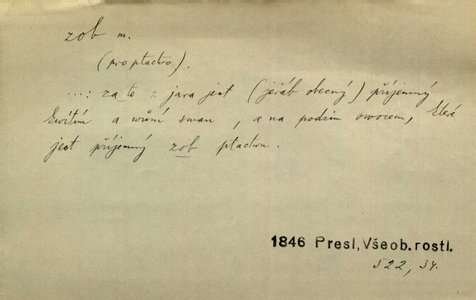 zob m.
(pro ptactvo).
...: za to z jara jest (jeřáb obecný) příjemný
kvítím a wůní swau, a na podzim owocem, které
jest příjemný zob ptactvu.
1846 Presl, Všeob. rostl.
522, 34.